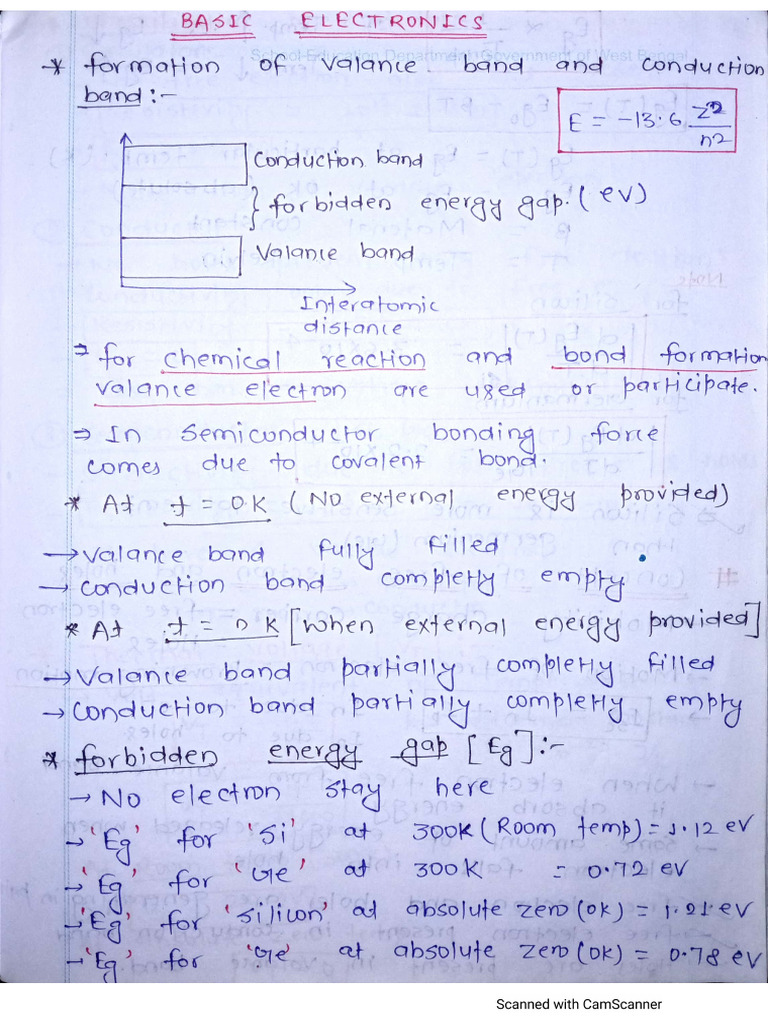 BASIC ELECTRONICS
School Education Department, Government of West Bengal
* formation of valance band and conduction
band:-
E = -13.6 Z²/n²
Conduction band
} forbidden energy gap. (eV)
Valance band
Interatomic
distance
⇒ for chemical reaction and bond formation
valance electron are used or participate.
⇒ In semiconductor bonding force
comes due to covalent bond.
* At t = 0K (No external energy provided)
→ valance band fully filled
→ conduction band completly empty
* At t = nK [when external energy provided]
→ Valance band partially completly filled
→ conduction band partially completly empty
* forbidden energy gap [Eg]:-
→ No electron stay here
→ 'Eg' for 'Si' at 300K (Room temp) = 1.12 eV
→ 'Eg' for 'Ge' at 300K = 0.72 eV
→ 'Eg' for 'silicon' at absolute zero (0K) = 1.21 eV
→ 'Eg' for 'Ge' at absolute zero (0K) = 0.78 eV
Scanned with CamScanner